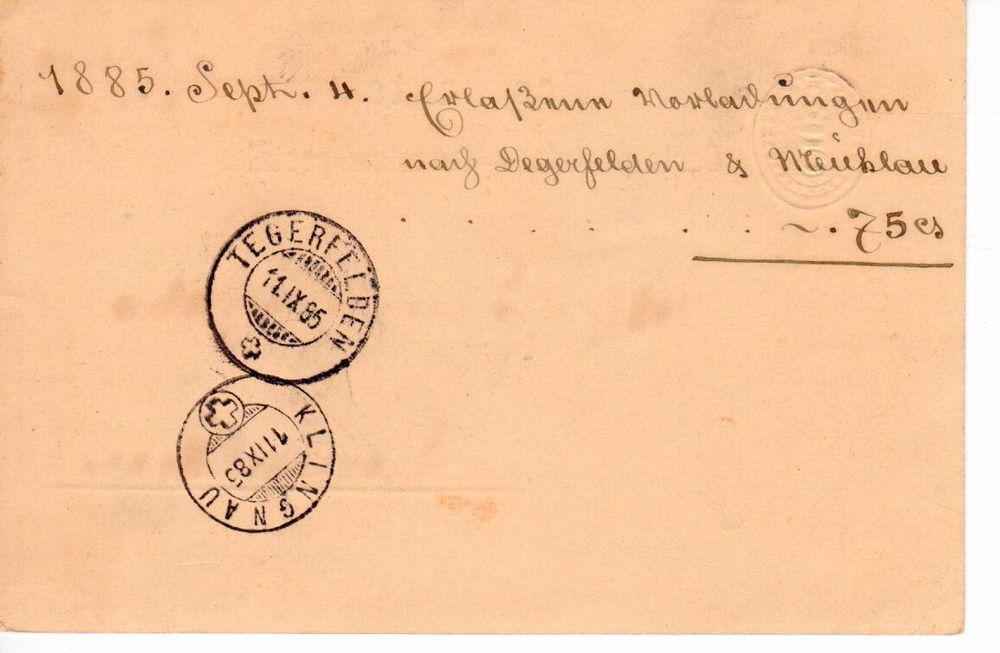 1885. Sept. 4. Erlaßene Vorladungen
nach Degerfelden & Mühlau
. . . . . ~. 75 cs
TEGERFELDEN
11.IX.85
KLINGNAU
11 IX 85